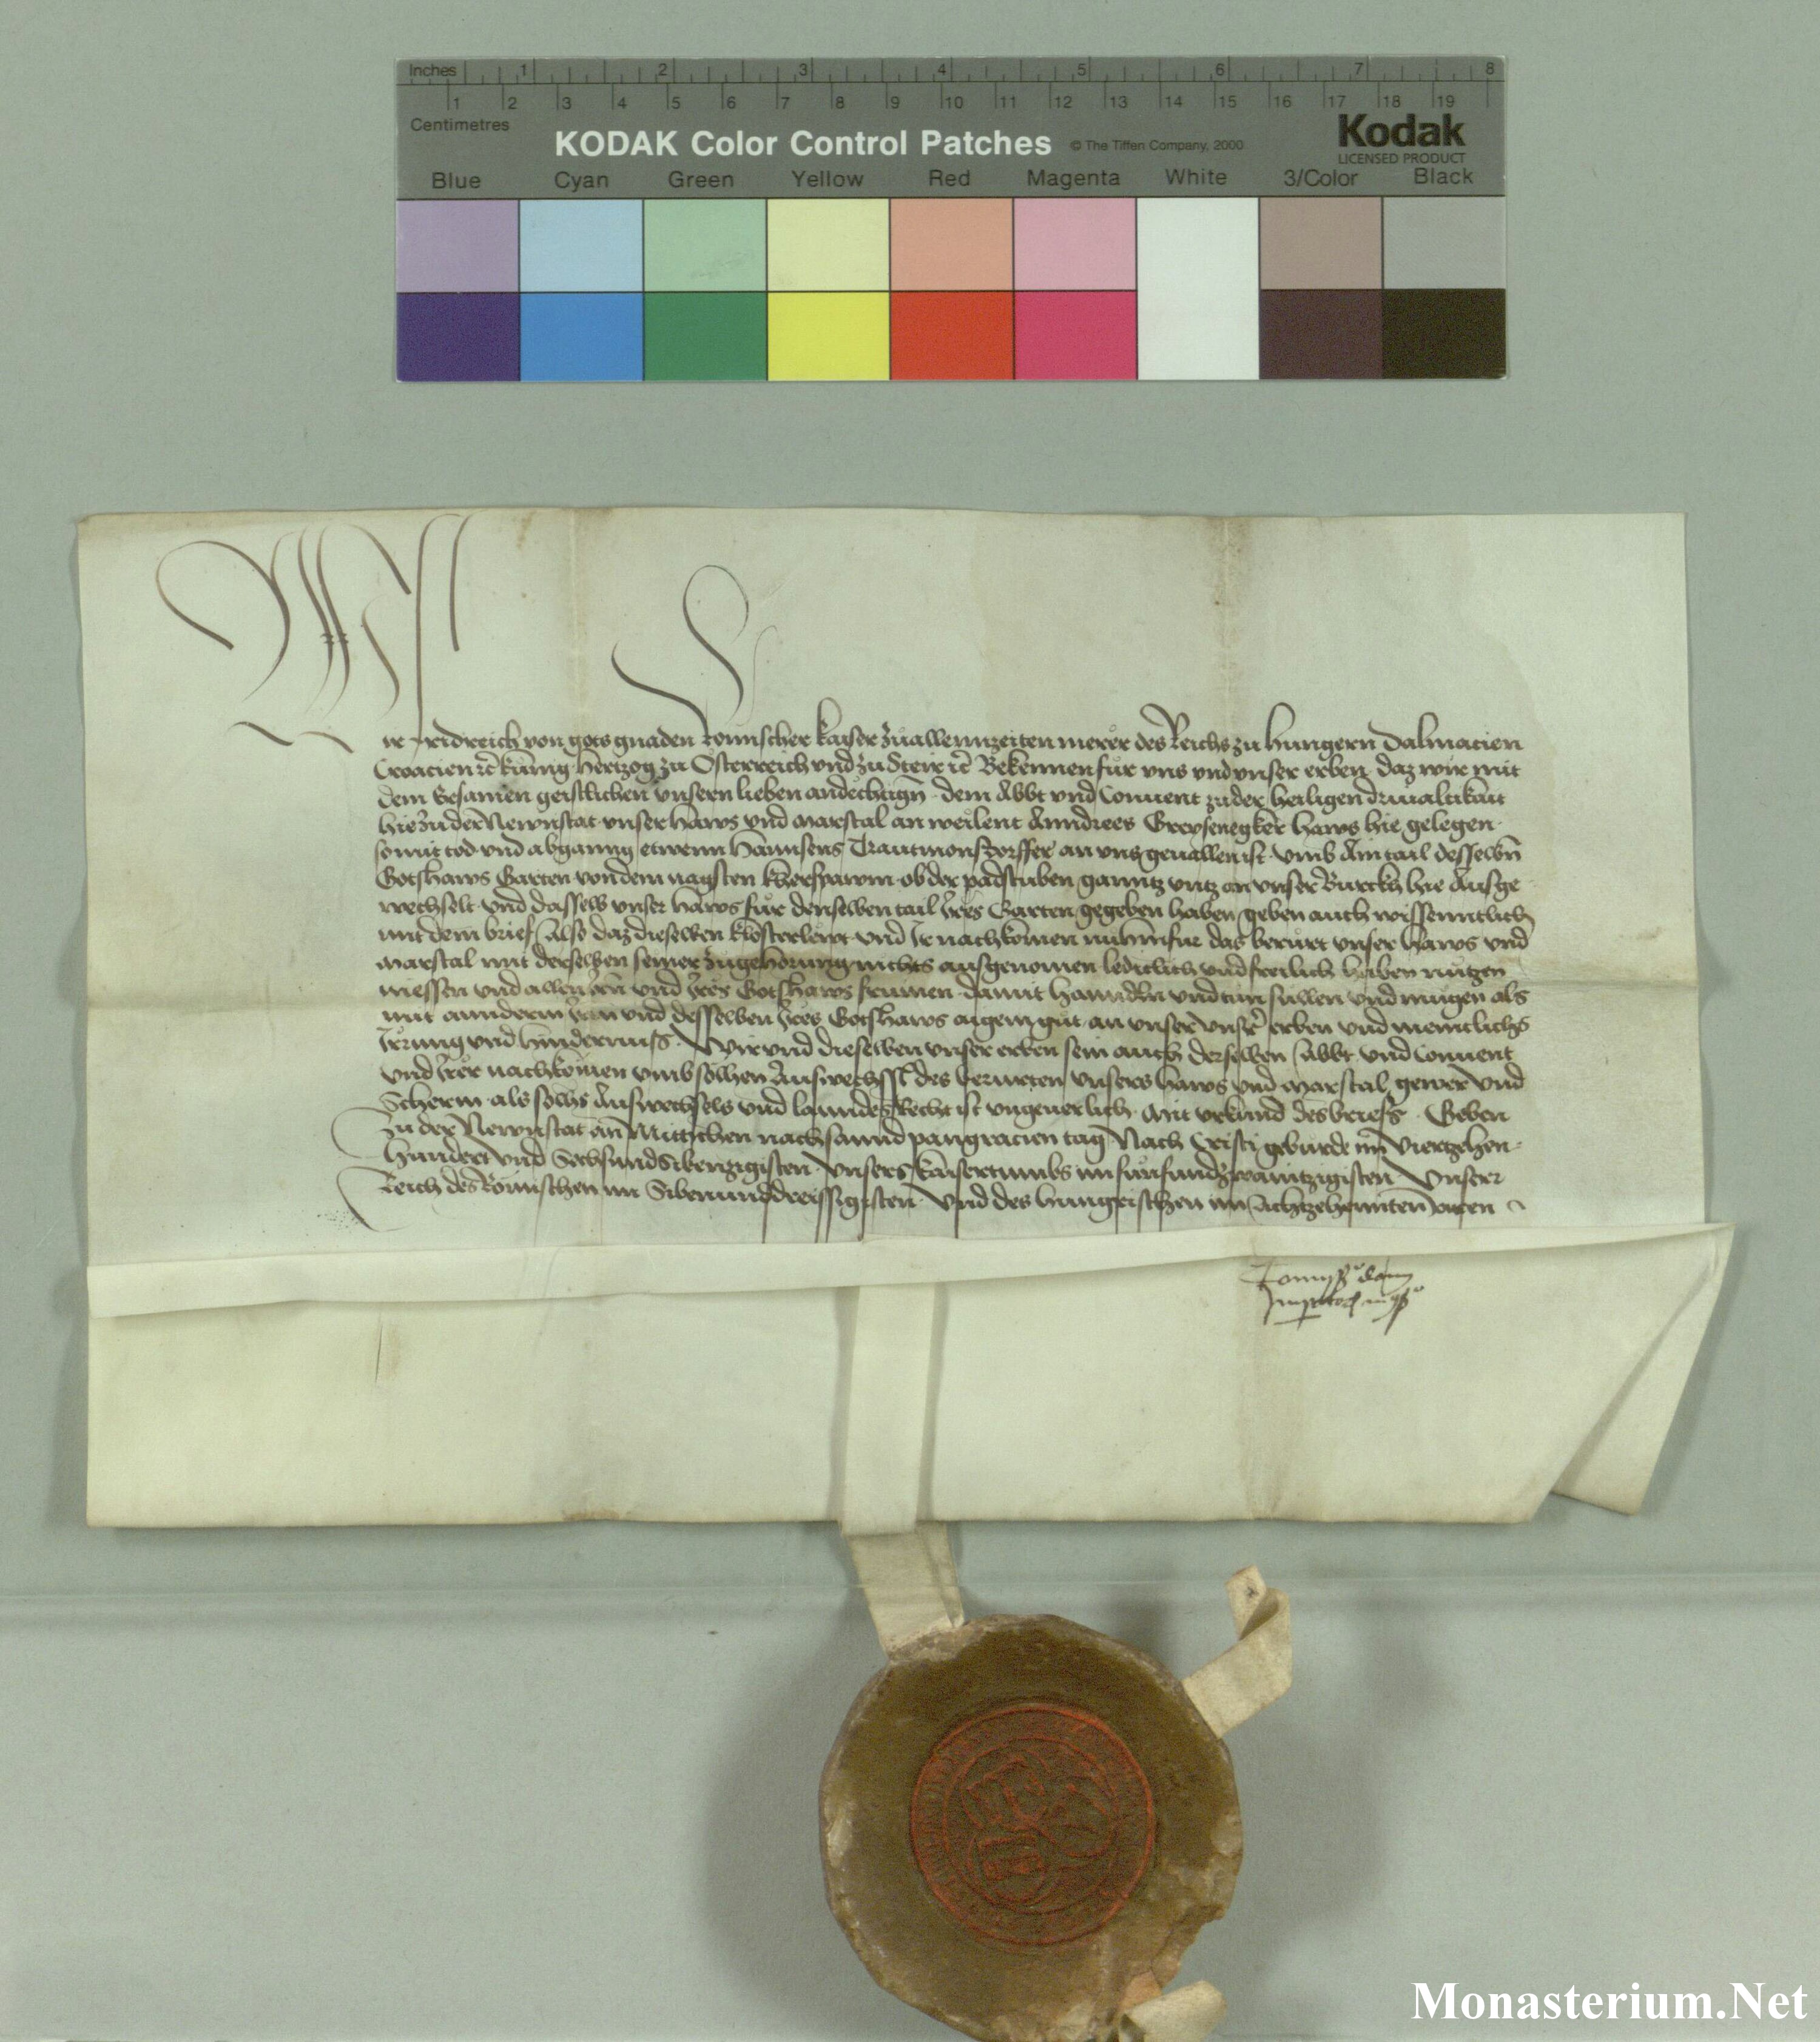 Inches 1 2 3 4 5 6 7 8
1 2 3 4 5 6 7 8 9 10 11 12 13 14 15 16 17 18 19
Centimetres
KODAK Color Control Patches © The Tiffen Company, 2000 Kodak
LICENSED PRODUCT
Blue Cyan Green Yellow Red Magenta White 3/Color Black
Wir Fridreich von gots gnaden Romischer kaiser zuallennzeiten merer des Reichs zu Hungern Dalmacien
Croacien ꝛc̄ kunig Hertzog zu Osterreich vnd zu Steir ꝛc̄ Bekennen fur vns vnd vnser erben daz wir mit
dem Ersamen geistlichen vnsern lieben andechtign̄ dem Abbt vnd Conuent zu der heiligen driualtikait
hie zu der Newnstat vnser haws vnd marstal an weilent Anndrees Greysenegker haws hie gelegen
so mit tod vnd abganng etwenn Hannsens Trautmonstorffer an vns geuallen ist vmb Ain tail desselbn̄
Gotshaws Garten von dem nagsten pawm ob der padstuben ganntz vntz an vnser Burckh hie Ausge
wechselt vnd dasselb vnser haws fur denselben tail Ires Garten gegeben haben geben auch wissenntlich
mit dem brief Also daz dieselben klosterlewt vnd Ir nachkomen nu hinfur das berurt vnser haws vnd
marstal mit derselben seiner zugehorung nichts ausgenomen lediclich vnd freilich haben nutzen
niessen vnd allen Irn̄ vnd Ires Gotshaws frumen damit hanndln̄ vnd tun sullen vnd mugen als
mit annderm Irm vnd desselben Ires Gotshaws aigem gut an vnser vnsrer erben vnd menitlichs
Irrung vnd hindernuss Wir vnd dieselben vnser erben sein auch derselben Abbt vnd Conuent
vnd Irer nachkomen vmb solhen Auswechssl des berurten vnsers haws vnd marstal gewer vnd
Scherm als solhs Auswechsels vnd lanndes Recht ist vngeuerlich Mit vrkund des briefs Geben
zu der Newnstat an Mittichen nach sannd pangracien tag Nach Cristi geburde im̄ viertzehen
Hundert vnd Sechsundsibenzigisten vnsers kaisertumbs im funfundzwaintzigisten vnserr
Reich des Romischen im Sibenunddreissigisten vnd des hungrischen im Achtzehennten Jaren
Monasterium.Net